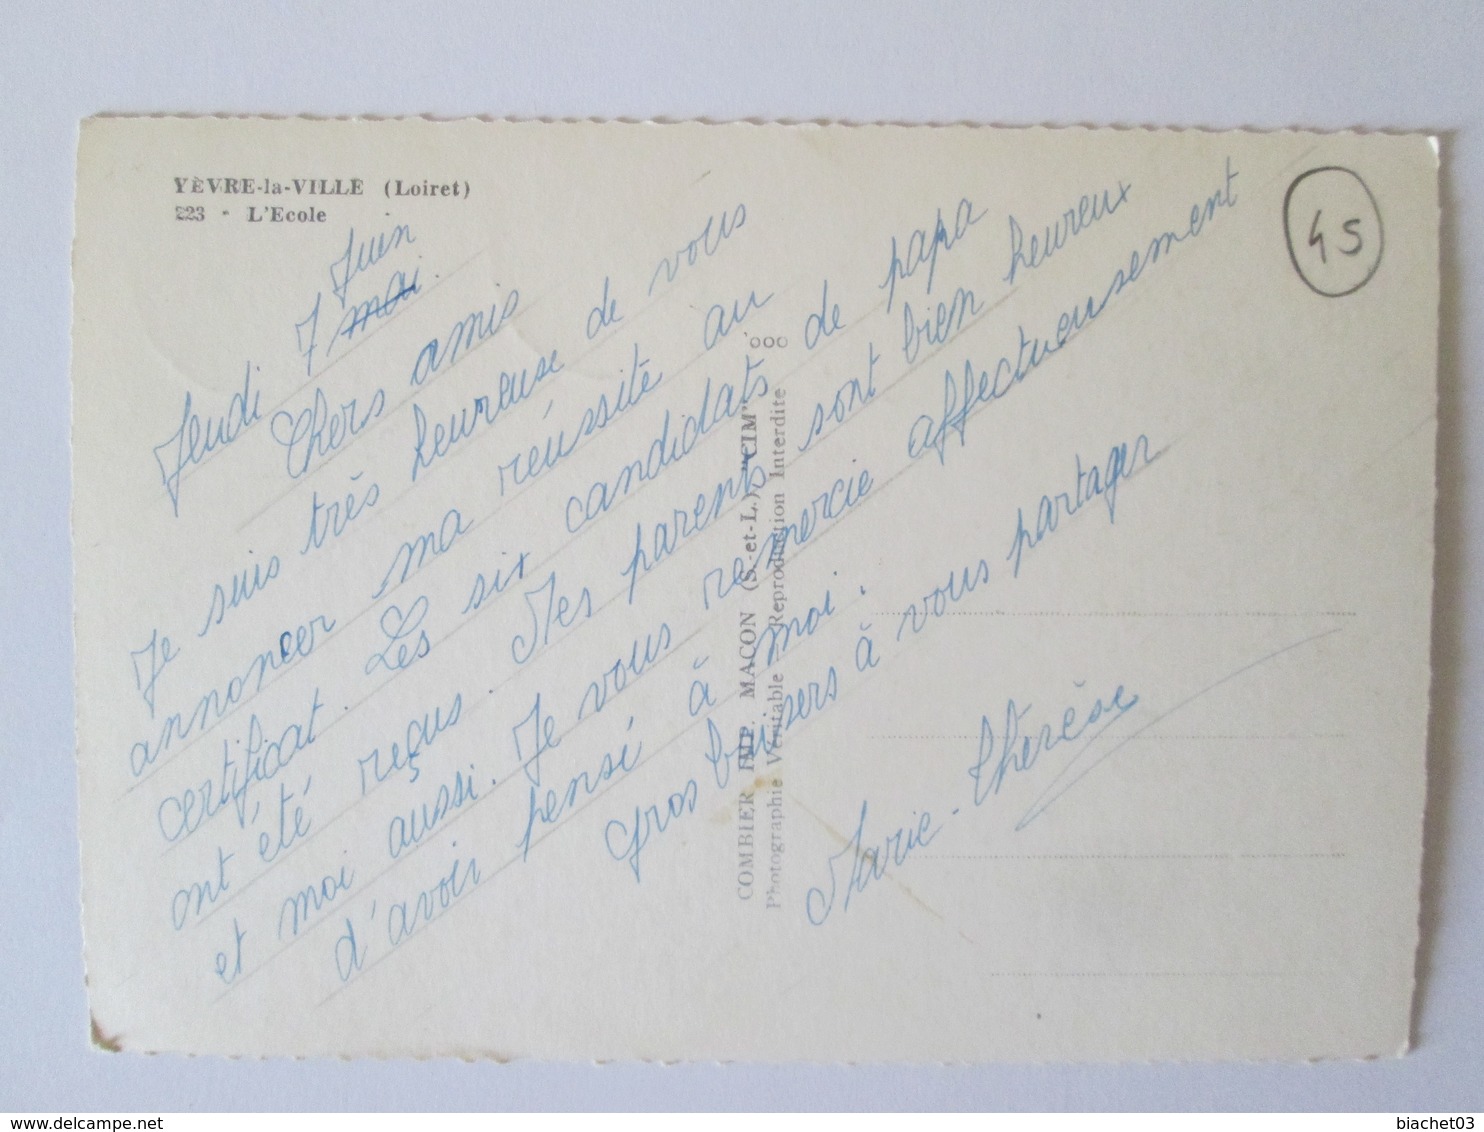 YÈVRE-la-VILLE (Loiret)
223 - L'Ecole
45
Juin
Jeudi 7 mai.
Chers amis
Je suis très heureuse de vous
annoncer ma réussite au
certificat. Les six candidats de papa
ont été reçus. Mes parents sont bien heureux
et moi aussi. Je vous remercie affectueusement
d'avoir pensé à moi.
Gros baisers à vous partager
Marie-thérèse
COMBIER IMP. MACON (S.-et-L.) "CIM"
Photographie Véritable Reproduction Interdite
delcampe.net
biachet03